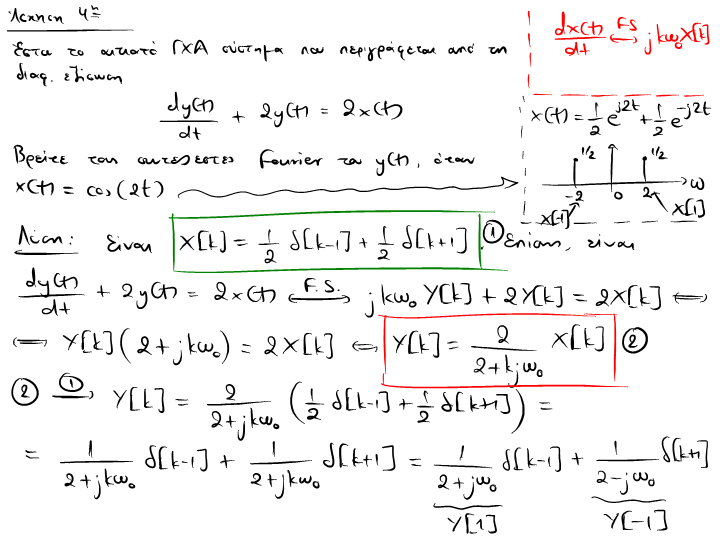 Άσκηση 4η
Έστω το αιτιατό ΓΧΑ σύστημα που περιγράφεται από τη
διαφ. εξίσωση
dy(t)/dt + 2y(t) = 2x(t)
Βρείτε τους συντελεστές Fourier του y(t), όταν
x(t) = cos(2t)
dx(t)/dt ⟷ F.S jkω₀X[k]
x(t) = 1/2 e^{j2t} + 1/2 e^{-j2t}
1/2 1/2
-2 0 2 ω
X[-1] X[1]
Λύση: Είναι X[k] = 1/2 δ[k-1] + 1/2 δ[k+1] ① Επίσης, είναι
dy(t)/dt + 2y(t) = 2x(t) ⟷ F.S. jkω₀ Y[k] + 2Y[k] = 2X[k] ⟺
⟺ Y[k](2+jkω₀) = 2X[k] ⟺ Y[k] = 2/(2+kjω₀) X[k] ②
② ⟹ ① Y[k] = 2/(2+jkω₀) (1/2 δ[k-1] + 1/2 δ[k+1]) =
= 1/(2+jkω₀) δ[k-1] + 1/(2+jkω₀) δ[k+1] = 1/(2+jω₀) δ[k-1] + 1/(2-jω₀) δ[k+1]
Y[1] Y[-1]